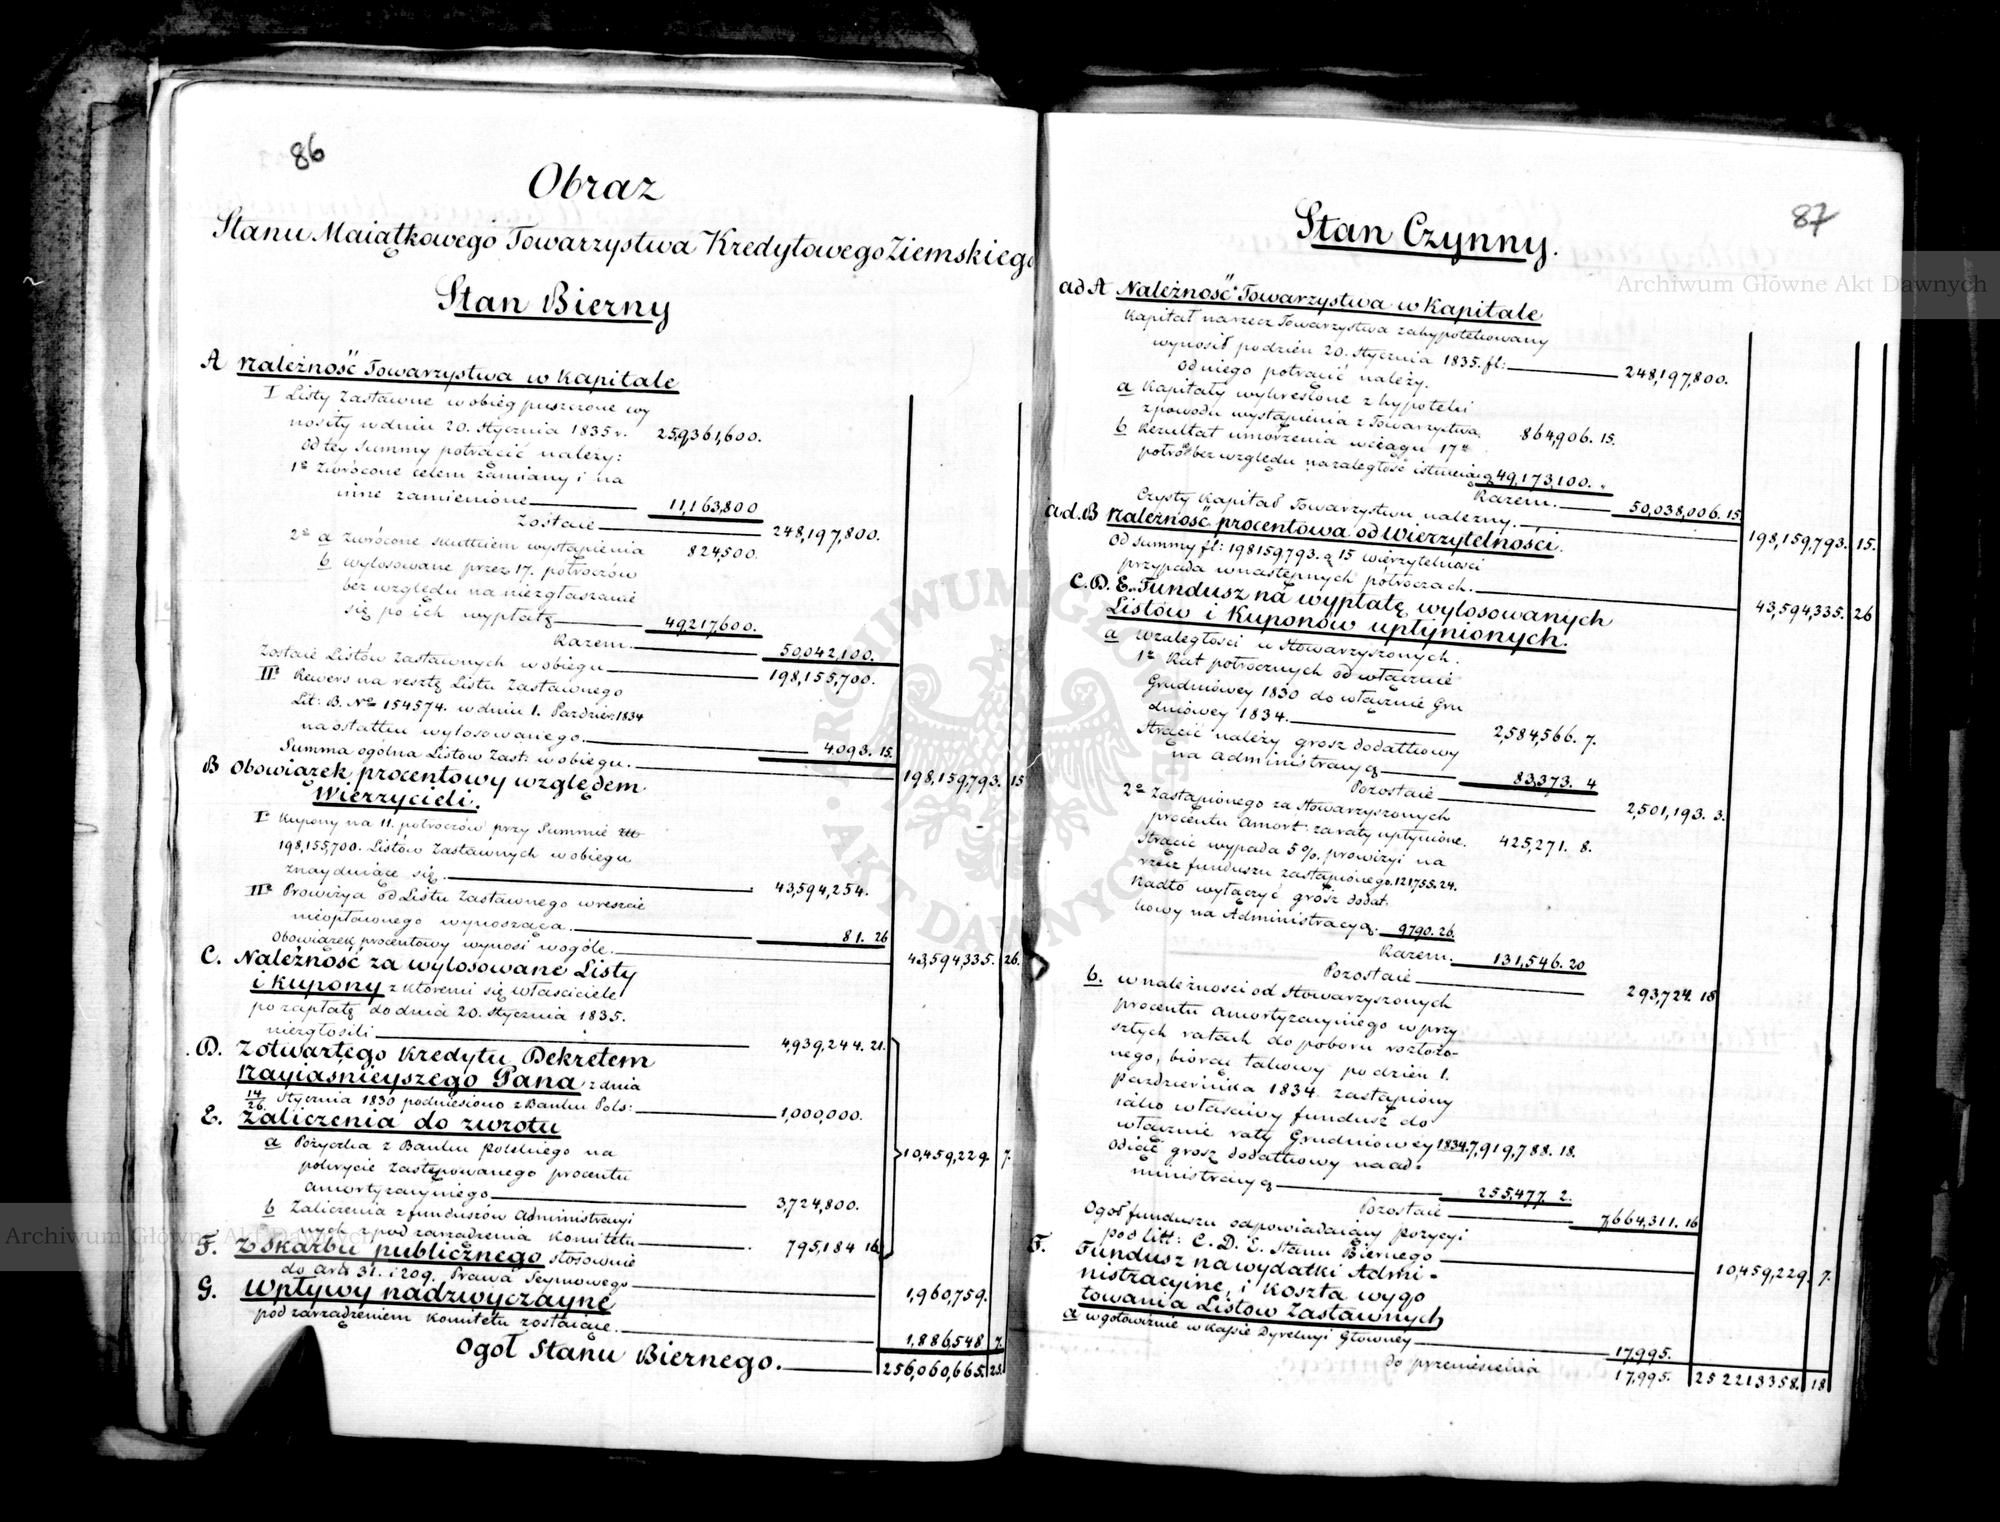 86
Obraz
Stanu Maiątkowego Towarzystwa Kredytowego Ziemskiego
Stan Bierny
A Należność Towarzystwa w Kapitale
I Listy Zastawne w obieg puszczone wy
nosiły w dniu 20. Stycznia 1835 r. 259,361,600.
Od tey Summy potrącić należy:
1° Zwrócone celem zamiany i na
inne zamienione 11,163,800
Zostaie 248,197,800.
2° a Zwrócone skutkiem wystąpienia 824,500.
b wylosowane przez 17. półroczów
bez względu na niezgłaszanie
się po ich wypłatę 49,217,600.
Razem 50,042,100.
Zostaie Listów Zastawnych w obiegu 198,155,700.
II° Rewers na resztę Listu Zastawnego
Lit: B. No 154574. w dniu 1. Paździer: 1834
na ostatku wylosowanego. 4,093. 15.
Summa ogólna Listów Zast: w obiegu. 198,159,793. 15
B Obowiązek procentowy względem
Wierzycieli.
I° Kupony na 11. półroczów przy Summie
198,155,700. Listów Zastawnych w obiegu
znayduiące się. 43,594,254.
II° Prowizya od Listu Zastawnego w reszcie
nieopłaconego wynosząca. 81. 26
Obowiązek procentowy wynosi wogóle. 43,594,335. 26.
C. Należność za wylosowane Listy
i Kupony z któremi się właściciele
po zapłatę do dnia 20. Stycznia 1835.
niezgłosili 4,939,244. 21.
D. Z otwartego Kredytu Dekretem
Nayiaśnieyszego Pana z dnia
14/26. Stycznia 1830 podniesiono z Banku Pols: 1,000,000.
E. Zaliczenia do zwrotu
a Pożyczka z Banku Polskiego na
pokrycie zastępowanego procentu
amortyzacyinego 3,724,800. 10,459,229. 7.
b Zaliczenia z funduszów Administracyi
nych z pod zarządzenia Komitetu 795,184 16
F. Z Skarbu publicznego stosownie
do art: 31. i 209. Prawa Seymowego 1,960,759.
G. Wpływy nadzwyczayne
pod zarządzeniem Komitetu zostaiące. 1,886,548 7.
Ogół Stanu Biernego. 256,060,665. 25.
87
Stan Czynny.
ad A Należność Towarzystwa w Kapitale
Kapitał na rzecz Towarzystwa zahypotekowany
wynosił po dzień 20. Stycznia 1835. fl: 248,197,800.
od niego potrącić należy.
a Kapitały wykreślone z hypoteki
z powodu wystąpienia z Towarzystwa, 864,906. 15.
b Rezultat umorzenia w ciągu 17u
półro: bez względu na zaległość istnieiącą 49,173,100. "
Razem. 50,038,006. 15
Czysty Kapitał Towarzystwu należny. 198,159,793. 15.
ad. B Należność procentowa od Wierzytelności.
Od summy fl: 198159793. g 15 wierzytelności
przypada w następnych półroczach. 43,594,335. 26
C. D. E. Fundusz na wypłatę wylosowanych
Listów i Kuponów upłynionych.
a w zaległości u Stowarzyszonych.
1° Rat półrocznych od włącznie
Grudniowey 1830 do włącznie Gru
dniowey 1834. 2,584,566. 7.
Strącić należy grosz dodatkowy
na administracyą 83,373. 4
Pozostaie 2,501,193. 3.
2° Zastąpionego za Stowarzyszonych
procentu Amort: za raty upłynione. 425,271. 8.
Strącić wypada 5%. prowizyi na
rzecz funduszu zastąpionego. 121755. 24.
Nadto wyłączyć grosz dodat.
kowy na Administracyą. 9790. 26.
Razem. 131,546. 20
Pozostaie 293,724. 18
b. w należności od Stowarzyszonych
procentu Amortyzacyinego w przy
szłych ratach do poboru rozłożo-
nego, biorąc takowy po dzień 1.
Października 1834. zastąpiony
iako właściwy fundusz do
włącznie raty Grudniowey 1834. 7,919,788. 18.
Odiąć grosz dodatkowy na ad:
ministracyą 255,477. 2.
Pozostaie 7,664,311. 16
Ogół funduszu odpowiadaiący Pozycyi
pod litt: C. D. E. Stanu Biernego 10,459,229. 7.
F. Fundusz na wydatki Admi-
nistracyine, i Koszta wygo
towania Listów Zastawnych
a w gotowiźnie w Kassie Dyrekcyi Główney 17,995.
do przeniesienia 17,995. 252213358. 18
Archiwum Główne Akt Dawnych
Archiwum Główne Akt Dawnych
ARCHIWUM GŁÓWNE AKT DAWNYCH